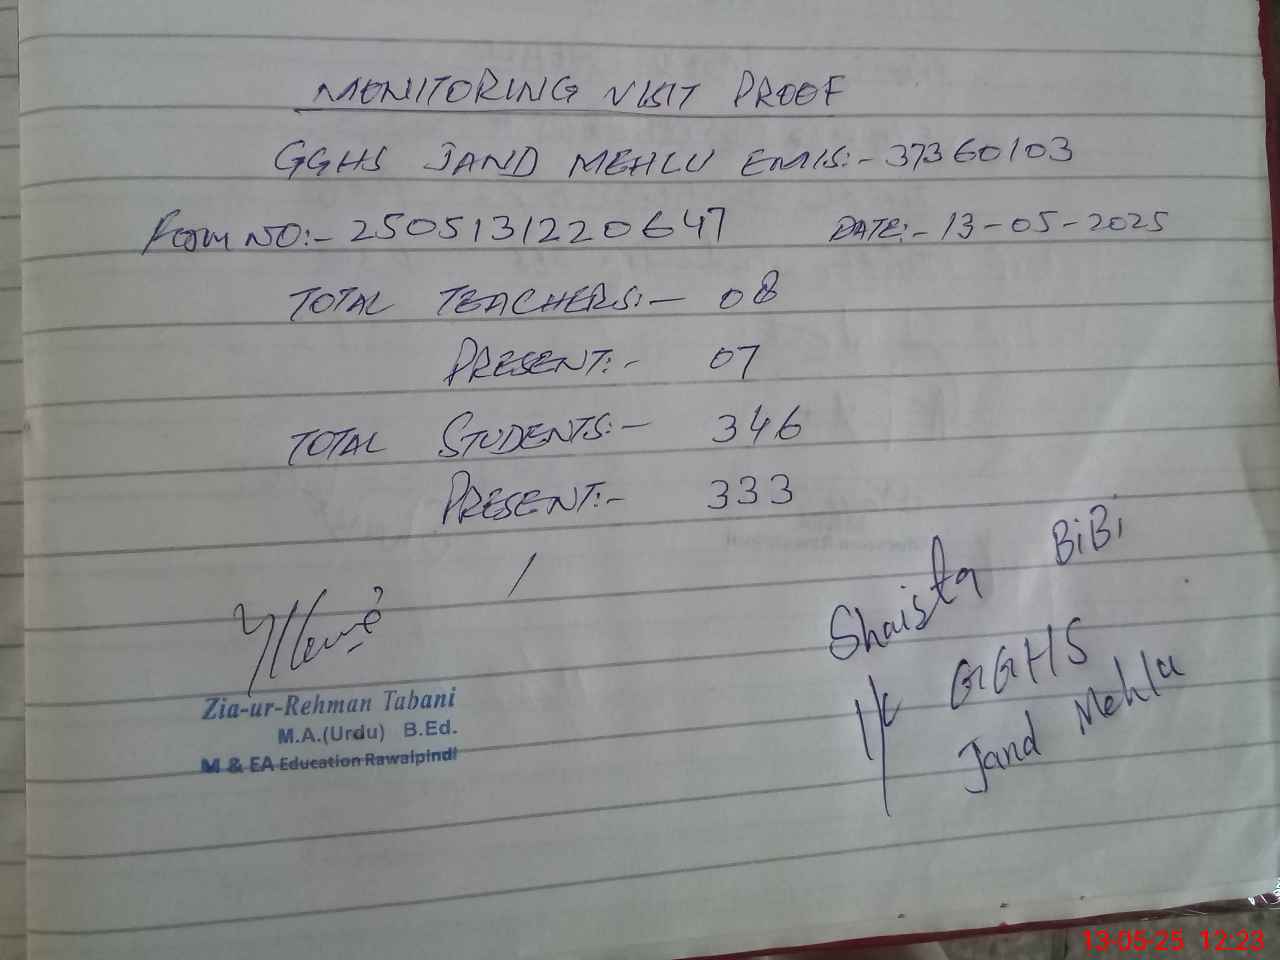 MONITORING VISIT PROOF
GGHS JAND MEHLU EMIS:- 37360103
Form NO:- 2505131220647 DATE:- 13-05-2025
TOTAL TEACHERS:- 08
PRESENT:- 07
TOTAL STUDENTS:- 346
PRESENT:- 333
Zia-ur-Rehman Tabani
M.A.(Urdu) B.Ed.
M & EA Education Rawalpindi
Shaista BiBi
I/C GGHS
Jand Mehlu
13-05-25 12:23